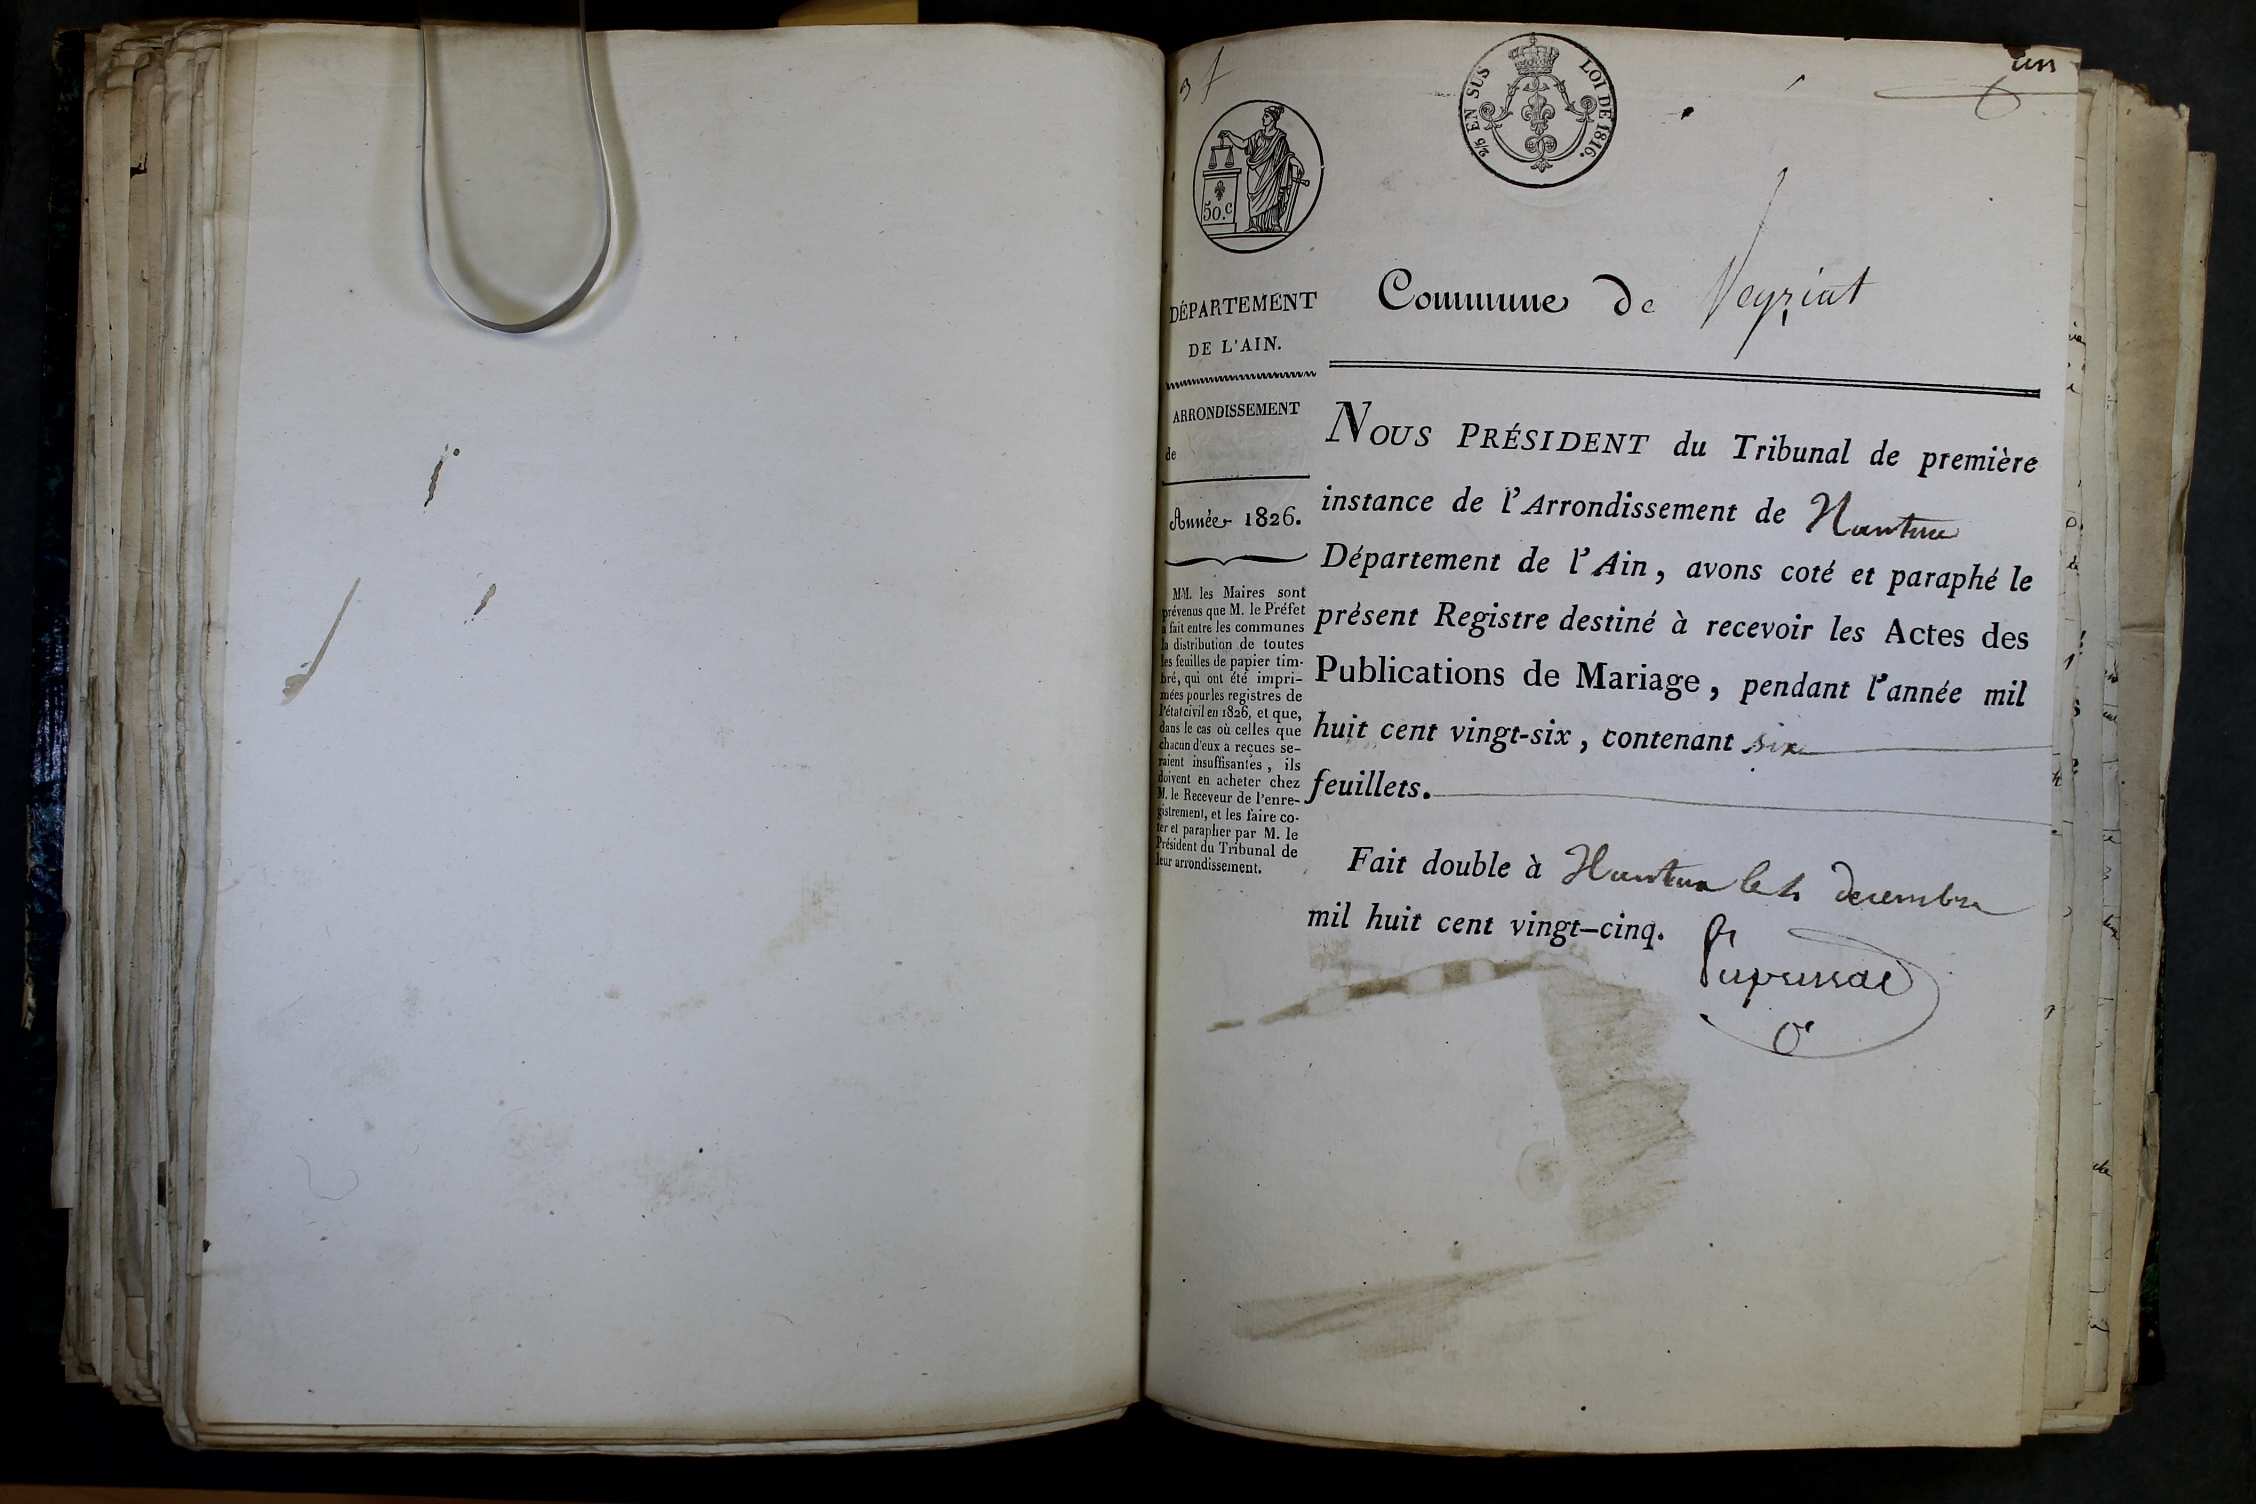 un
2/5 EN SUS LOI DE 1816.
50.c
DÉPARTEMENT
DE L'AIN.
ARRONDISSEMENT
de
Année 1826.
MM. les Maires sont
prévenus que M. le Préfet
a fait entre les communes
la distribution de toutes
les feuilles de papier tim-
bré, qui ont été impri-
mées pour les registres de
l'état civil en 1826, et que,
dans le cas où celles que
chacun d'eux a reçues se-
raient insuffisantes, ils
doivent en acheter chez
M. le Receveur de l'enre-
gistrement, et les faire co-
ter et parapher par M. le
Président du Tribunal de
leur arrondissement.
Commune de Veyziat
NOUS PRÉSIDENT du Tribunal de première
instance de l'Arrondissement de Nantua
Département de l'Ain, avons coté et paraphé le
présent Registre destiné à recevoir les Actes des
Publications de Mariage, pendant l'année mil
huit cent vingt-six, contenant six
feuillets.
Fait double à Nantua le decembre
mil huit cent vingt-cinq.